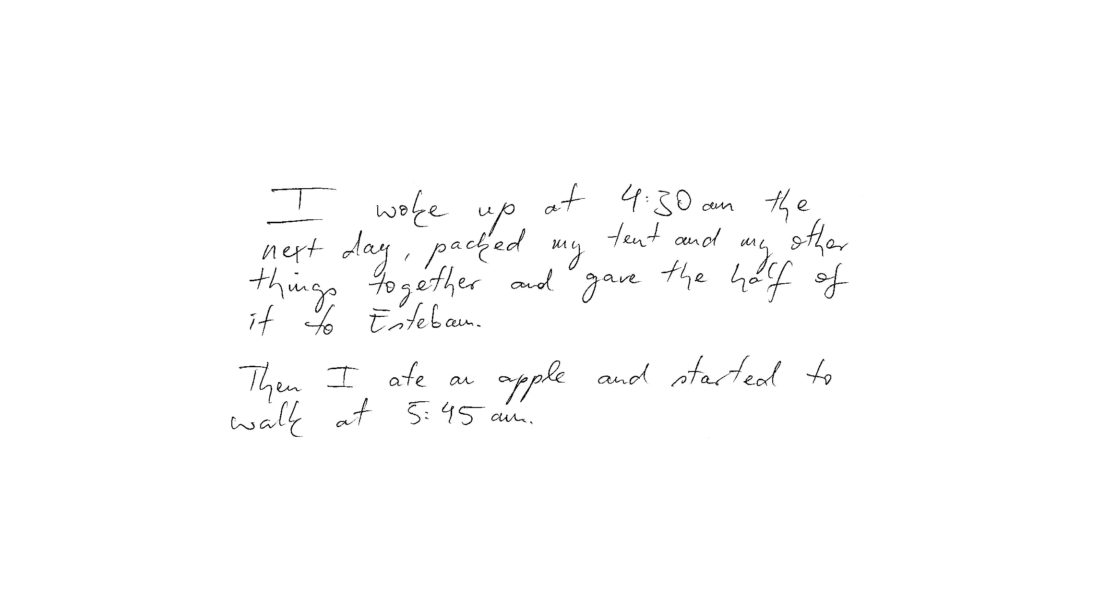 I woke up at 4:30 am the
next day, packed my tent and my other
things together and gave the half of
it to Esteban.
Then I ate an apple and started to
walk at 5:45 am.